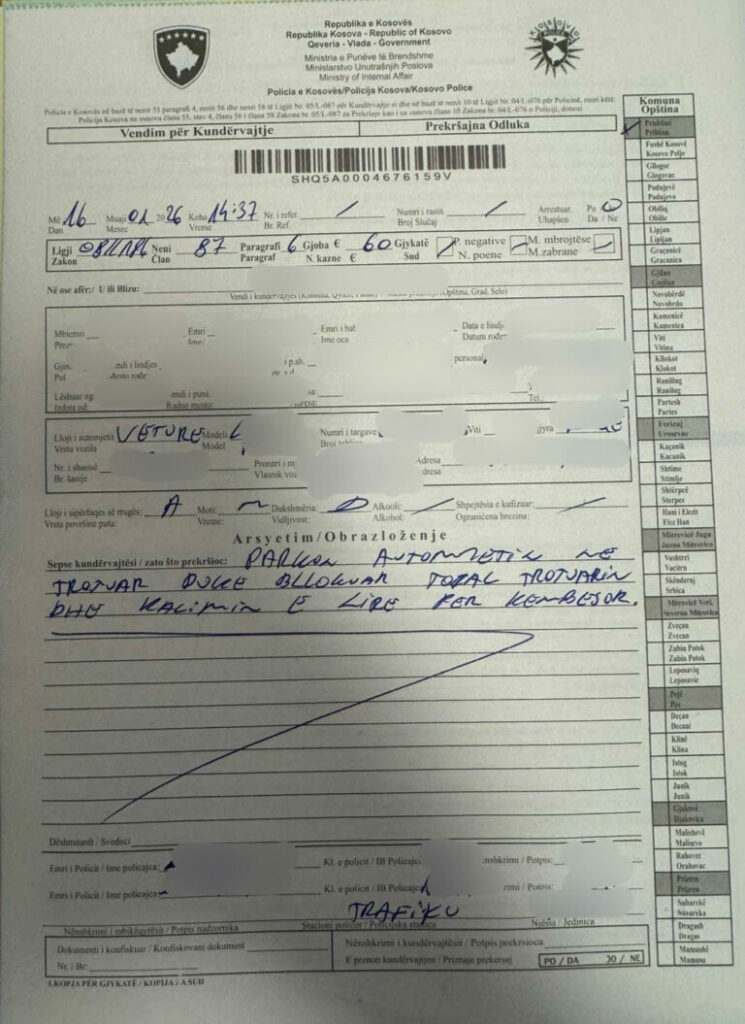 Republika e Kosovës
Republika Kosova - Republic of Kosovo
Qeveria - Vlada - Government
Ministria e Punëve të Brendshme
Ministarstvo Unutrašnjih Poslova
Ministry of Internal Affair
Policia e Kosovës/Policija Kosova/Kosovo Police
KOSOVO
POLICE
Policia e Kosovës në bazë të nenit 55 paragrafi 4, nenit 56 dhe nenit 58 të Ligjit Nr. 05/L-087 për Kundërvajtje si dhe në bazë të nenit 10 të Ligjit Nr. 04/L-076 për Policinë, mori këtë:
Policija Kosova na osnovu člana 55, stav 4, člana 56 i člana 58 Zakona br. 05/L-087 za Prekršaje kao i na osnovu člana 10 Zakona br. 04/L-076 o Policiji, donosi:
Vendim për Kundërvajtje Prekršajna Odluka
SHQ5A0004676159V
Më 16 Muaji 01 2026 Koha 14:37 Nr. i refer. / Numri i rastit / Arrestuar Po
Dan Mesec Vreme Br. Ref. Broj Slučaj Uhapšen Da / Ne
Ligji 08 Neni 87 Paragrafi 6 Gjoba € 60 Gjykatë P. negative M. mbrojtëse
Zakon Član Paragraf N. kazne € Sud N. poene M.zabrane
Në ose afër:/ U ili Blizu:
Mbiemri Emri Emri i bab Data e lindj
Prez Ime Ime oca Datum rođe
Gjin ndi i lindjes i p.sh. personal
Pol Mesto rođe
Lëshuar ng. endi i puni
Izdata od: Radno mesto: Tel.
Lloji i automjetit VETURE Modeli Numri i targave Viti
Vrsta vozila Model Broj
Nr. i shasisë Pronari i m Adresa
Br. šasije Vlasnik voz dresa
Lloji i sipërfaqes së rrugës: A Moti: Dukshmëria: Alkooli: / Shpejtësia e kufizuar: /
Vrsta površine puta: Vreme: Vidljivost: Alkohol: Ograničena brzina:
Arsyetim/Obrazloženje
Sepse kundërvajtësi / zato što prekršioc: PARKON AUTOMJETIN NE
TROTUAR DUKE BLLOKUAR TOTAL TROTUARIN
DHE KALIMIN E LIRE PER KEMBESOR.
Dëshmitarët / Svedoci
Emri i Policit / Ime policajca: Kl. e policit / ID Policajc nshkrimi / Potpis:
Emri i Policit / Ime policajca: Kl. e policit / ID Policajc rimi / Potpis:
TRAFIKU
Nënshkrimi i mbikëqyrësit / Potpis nadzornika Stacioni policor / Policijska stanica Njësia / Jedinica
Dokumenti i konfiskuar / Konfiskovani dokument Nënshkrimi i kundërvajtësit / Potpis prekršioca
Nr. / Br: E pranon kundërvajtjen / Priznaje prekršaj PO / DA JO / NE
1.KOPJA PËR GJYKATË / KOPIJA ZA SUD
Komuna
Opština
Prishtinë
Priština
Fushë Kosovë
Kosovo Polje
Gllogoc
Glogovac
Podujevë
Podujevo
Obiliq
Obilić
Lipjan
Lipljan
Graçanicë
Gracanica
Gjilan
Gnjilane
Novobërdë
Novobrdo
Kamenicë
Kamenica
Viti
Vitina
Kllokot
Klokot
Ranillug
Ranilug
Partesh
Partes
Ferizaj
Urosevac
Kaçanik
Kacanik
Shtime
Stimlje
Shtërpcë
Sterpce
Hani i Elezit
Elez Han
Mitrovicë Jugu
Juzna Mitrovica
Vushtrri
Vucitrn
Skënderaj
Srbica
Mitrovicë Veri.
Severna Mitrovica
Zveçan
Zvecan
Zubin Potok
Zubin Potok
Leposaviq
Leposavic
Pejë
Pec
Deçan
Decani
Klinë
Klina
Istog
Istok
Junik
Junik
Gjakovë
Djakovica
Malishevë
Malisevo
Rahovec
Orahovac
Prizren
Prizren
Suharekë
Suvareka
Dragash
Dragas
Mamushë
Mamusa